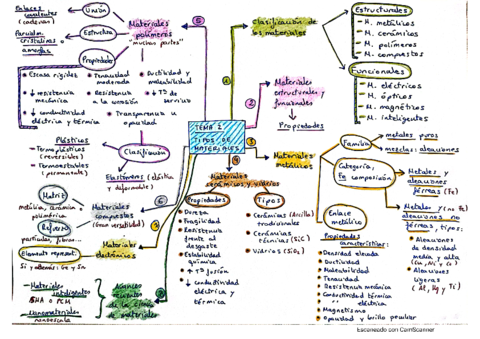 Enlaces
covalentes
(cadenas)
Unión
Parcialm.
cristalinos o
amorfos
Estructura
Materiales
polímeros
"muchas partes"
Propiedades
• Escasa rigidez
• ↓ resistencia
mecánica
• ↓ conductividad
eléctrica y térmica
• Tenacidad
moderada
• Resistencia
a la corrosión
• Transparencia u
opacidad
• Ductilidad y
maleabilidad
• ↓ Tª de
servicio
Clasificación
Plásticos
- Termoplásticos
(reversibles)
- Termoestables
(permanente)
Elastómeros (elástica
y deformable)
TEMA 2
TIPOS DE
MATERIALES
1
Clasificación de
los materiales
Estructurales
- M. metálicos
- M. cerámicos
- M. polímeros
- M. compuestos
Funcionales
- M. eléctricos
- M. ópticos
- M. magnéticos
- M. inteligentes
2
Materiales
estructurales y
funcionales
Propiedades
3
Materiales
metálicos
Familia
metales puros
mezclas: aleaciones
Categoría,
Composición
Metales y
aleaciones
férreas (Fe)
Metales y (no Fe)
aleaciones no
férreas, tipos:
• Aleaciones
de densidad
media y alta
(Cu, Ni y Co)
• Aleaciones
ligeras
(Al, Mg y Ti)
Enlace
metálico
Propiedades
características:
• Densidad elevada
• Ductilidad
• Maleabilidad
• Tenacidad
• Resistencia mecánica
• Conductividad térmica
" eléctrica
• Magnetismo
• Opacidad y brillo peculiar
4
Materiales
cerámicos y vidrios
Propiedades
• Dureza
• Fragilidad
• Resistencia
frente al
desgaste
• Estabilidad
química
• ↑ Tª fusión
• ↓ conductividad
eléctrica y
térmica
Tipos
• Cerámicas (Arcilla)
tradicionales
• Cerámicas
técnicas (SiC)
• Vidrios (SiO₂)
5
6
Materiales
compuestos
(Gran versatilidad)
Matriz
metálica, cerámica o
polimérica
Refuerzo
partículas, fibras...
Materiales
electrónicos
Si y además: Ge y Sn
- Materiales
inteligentes
SMA o PCM
- Nanomateriales
nanoescala
Avances
recientes
de la ciencia
de materiales
Escaneado con CamScanner